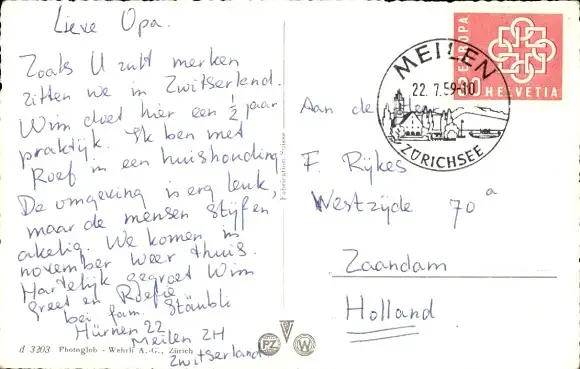 Lieve Opa.
Zoals U zult merken
zitten we in Zwitserland.
Wim doet hier een ½ jaar
praktijk. Ik ben met
Roef in een huishouding
De omgeving is erg leuk,
maar de mensen stijf en
akelig. We komen in
november weer thuis.
Hartelijk gegroet Wim
Greet en Roefie
bei fam. Stäubli
Hürnen 22
Meilen ZH
Zwitserland
d 3203 Photoglob - Wehrli A.-G., Zürich
PZ
W
EUROPA
30 HELVETIA
MEILEN
22.7.59-10
ZÜRICHSEE
Aan de Heer
F. Rijkes
Westzijde 70 a
Zaandam
Holland